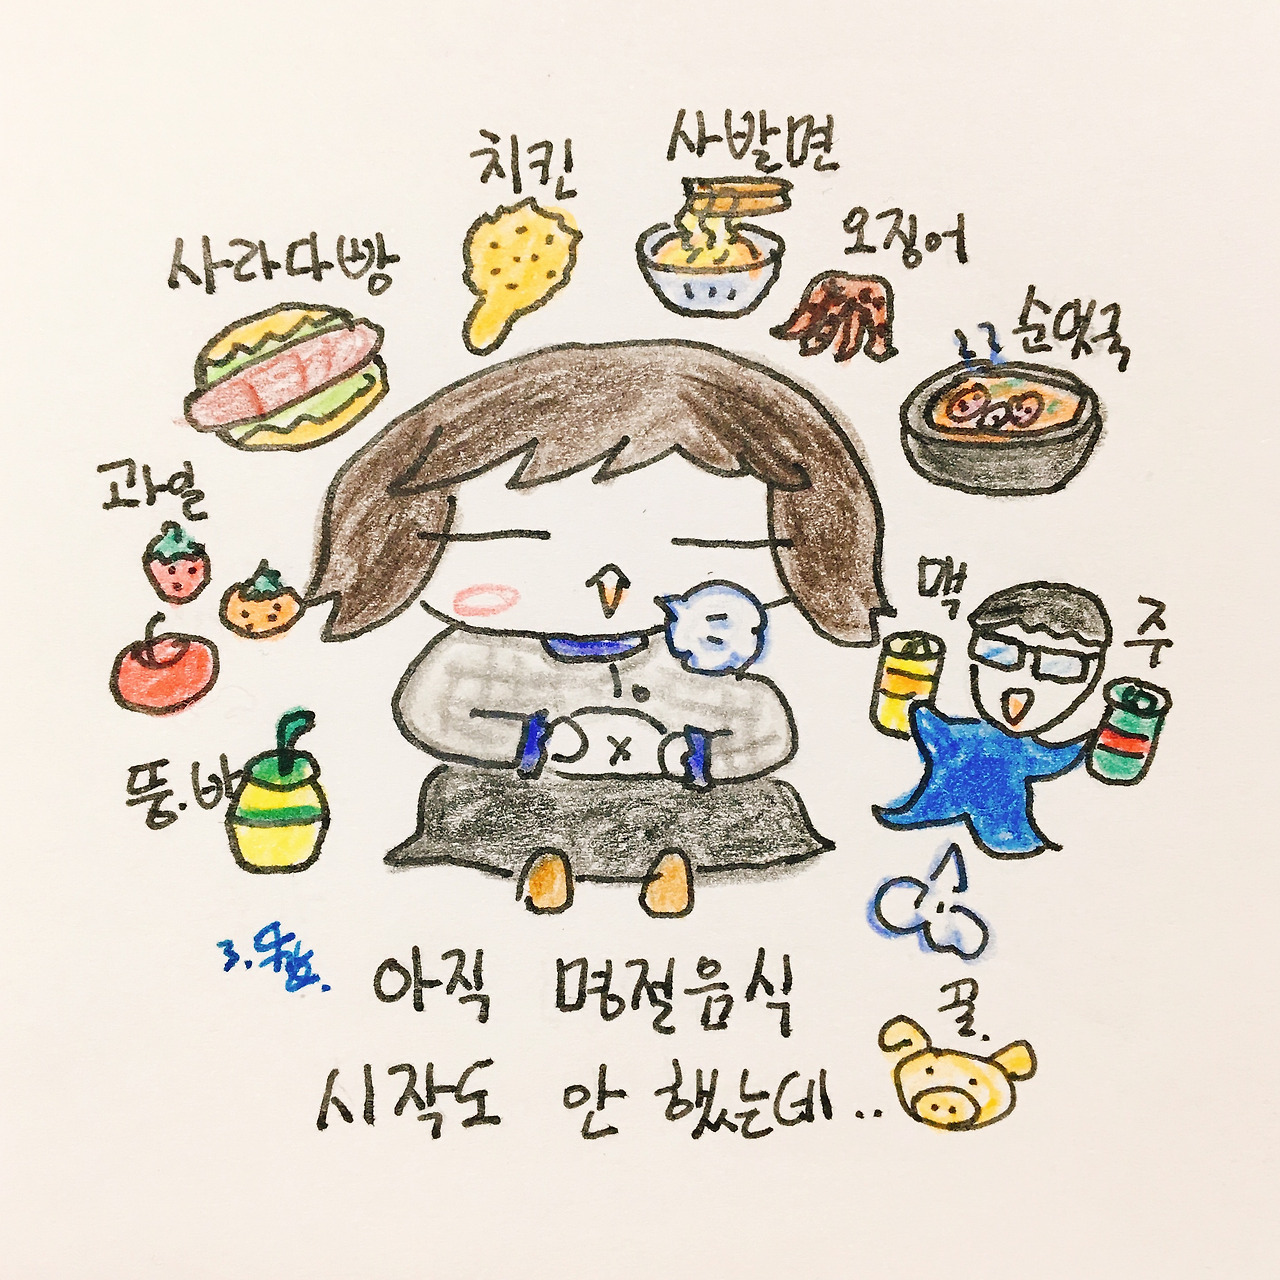 치킨
사발면
오징어
사라다빵
순댓국
과일
맥
주
뚱.바
아직 명절음식
꿀.
시작도 안 했는데..